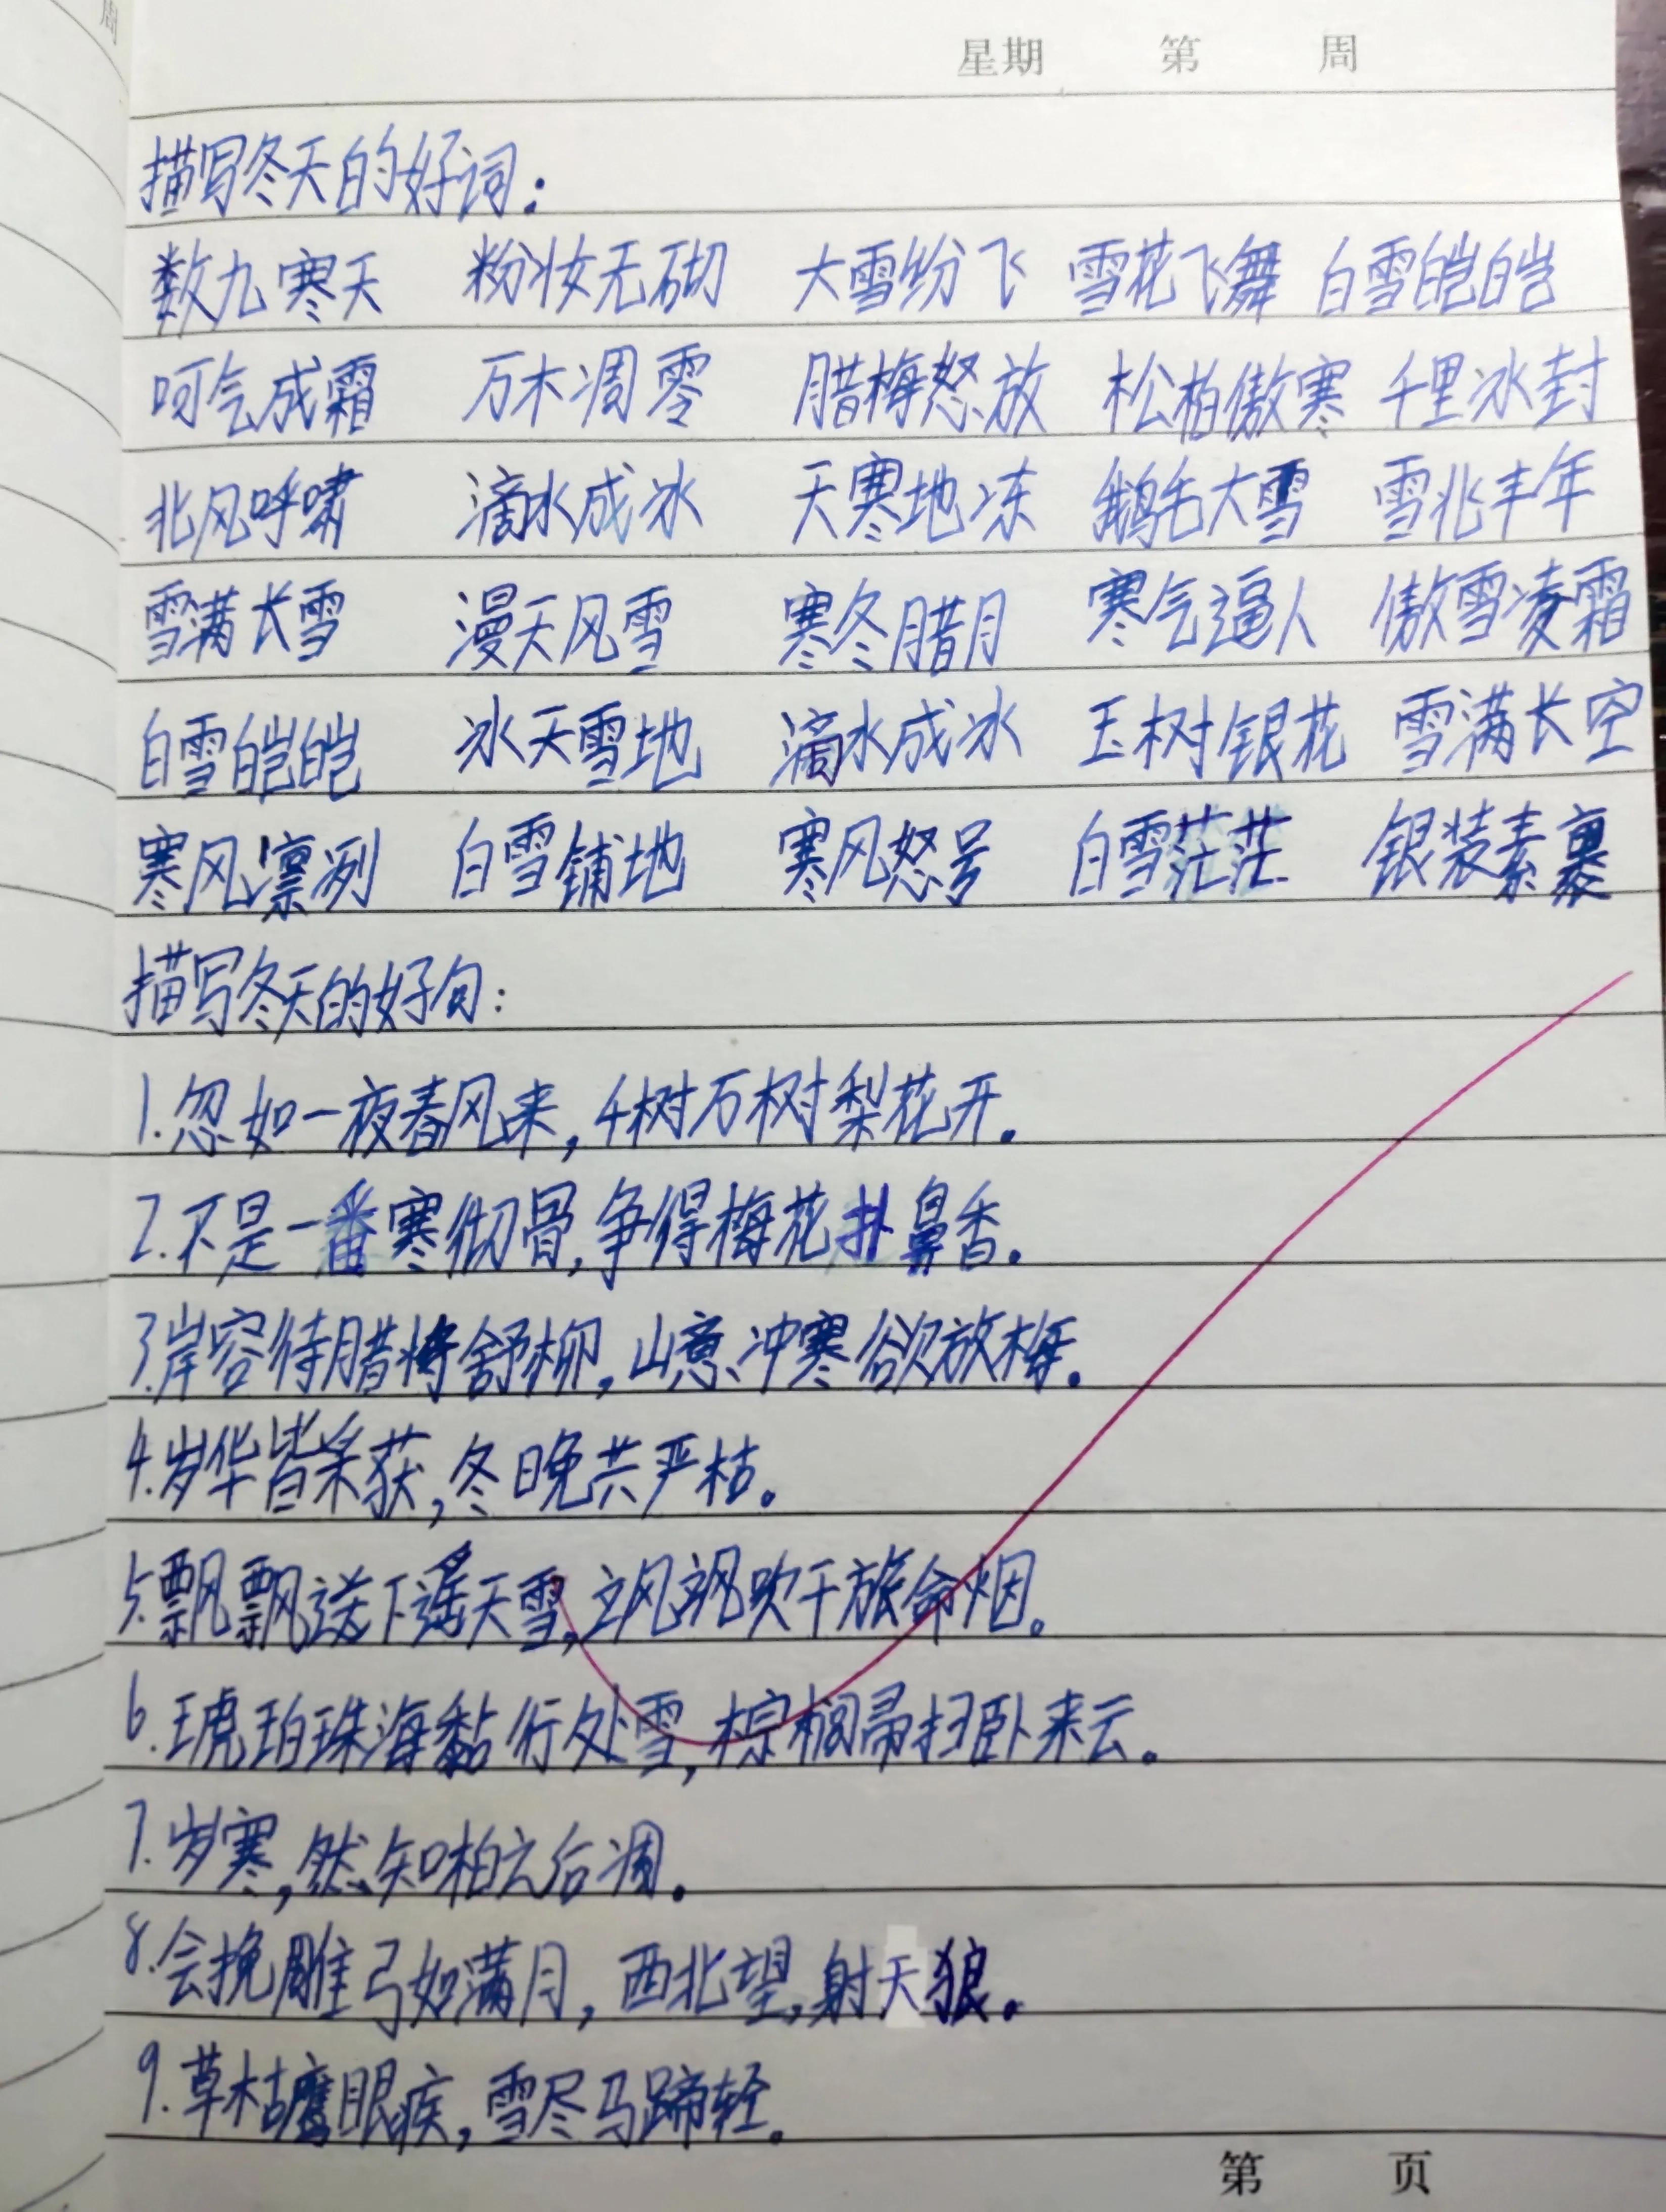 周
星期 第 周
描写冬天的好词:
数九寒天 粉妆无砌 大雪纷飞 雪花飞舞 白雪皑皑
呵气成霜 万木凋零 腊梅怒放 松柏傲寒 千里冰封
北风呼啸 滴水成冰 天寒地冻 鹅毛大雪 雪兆丰年
雪满长雪 漫天风雪 寒冬腊月 寒气逼人 傲雪凌霜
白雪皑皑 冰天雪地 滴水成冰 玉树银花 雪满长空
寒风凛冽 白雪铺地 寒风怒号 白雪茫茫 银装素裹
描写冬天的好句:
1.忽如一夜春风来,千树万树梨花开。
2.不是一番寒彻骨,争得梅花扑鼻香。
3.岸容待腊将舒柳,山意冲寒欲放梅。
4.岁华皆采获,冬晚共严枯。
5.飘飘送下遥天雪,飒飒吹干旅命烟。
6.琥珀珠海黏行处雪,棕榈帚扫卧来云。
7.岁寒,然知柏之后凋。
8.会挽雕弓如满月,西北望,射天狼。
9.草枯鹰眼疾,雪尽马蹄轻。
第 页